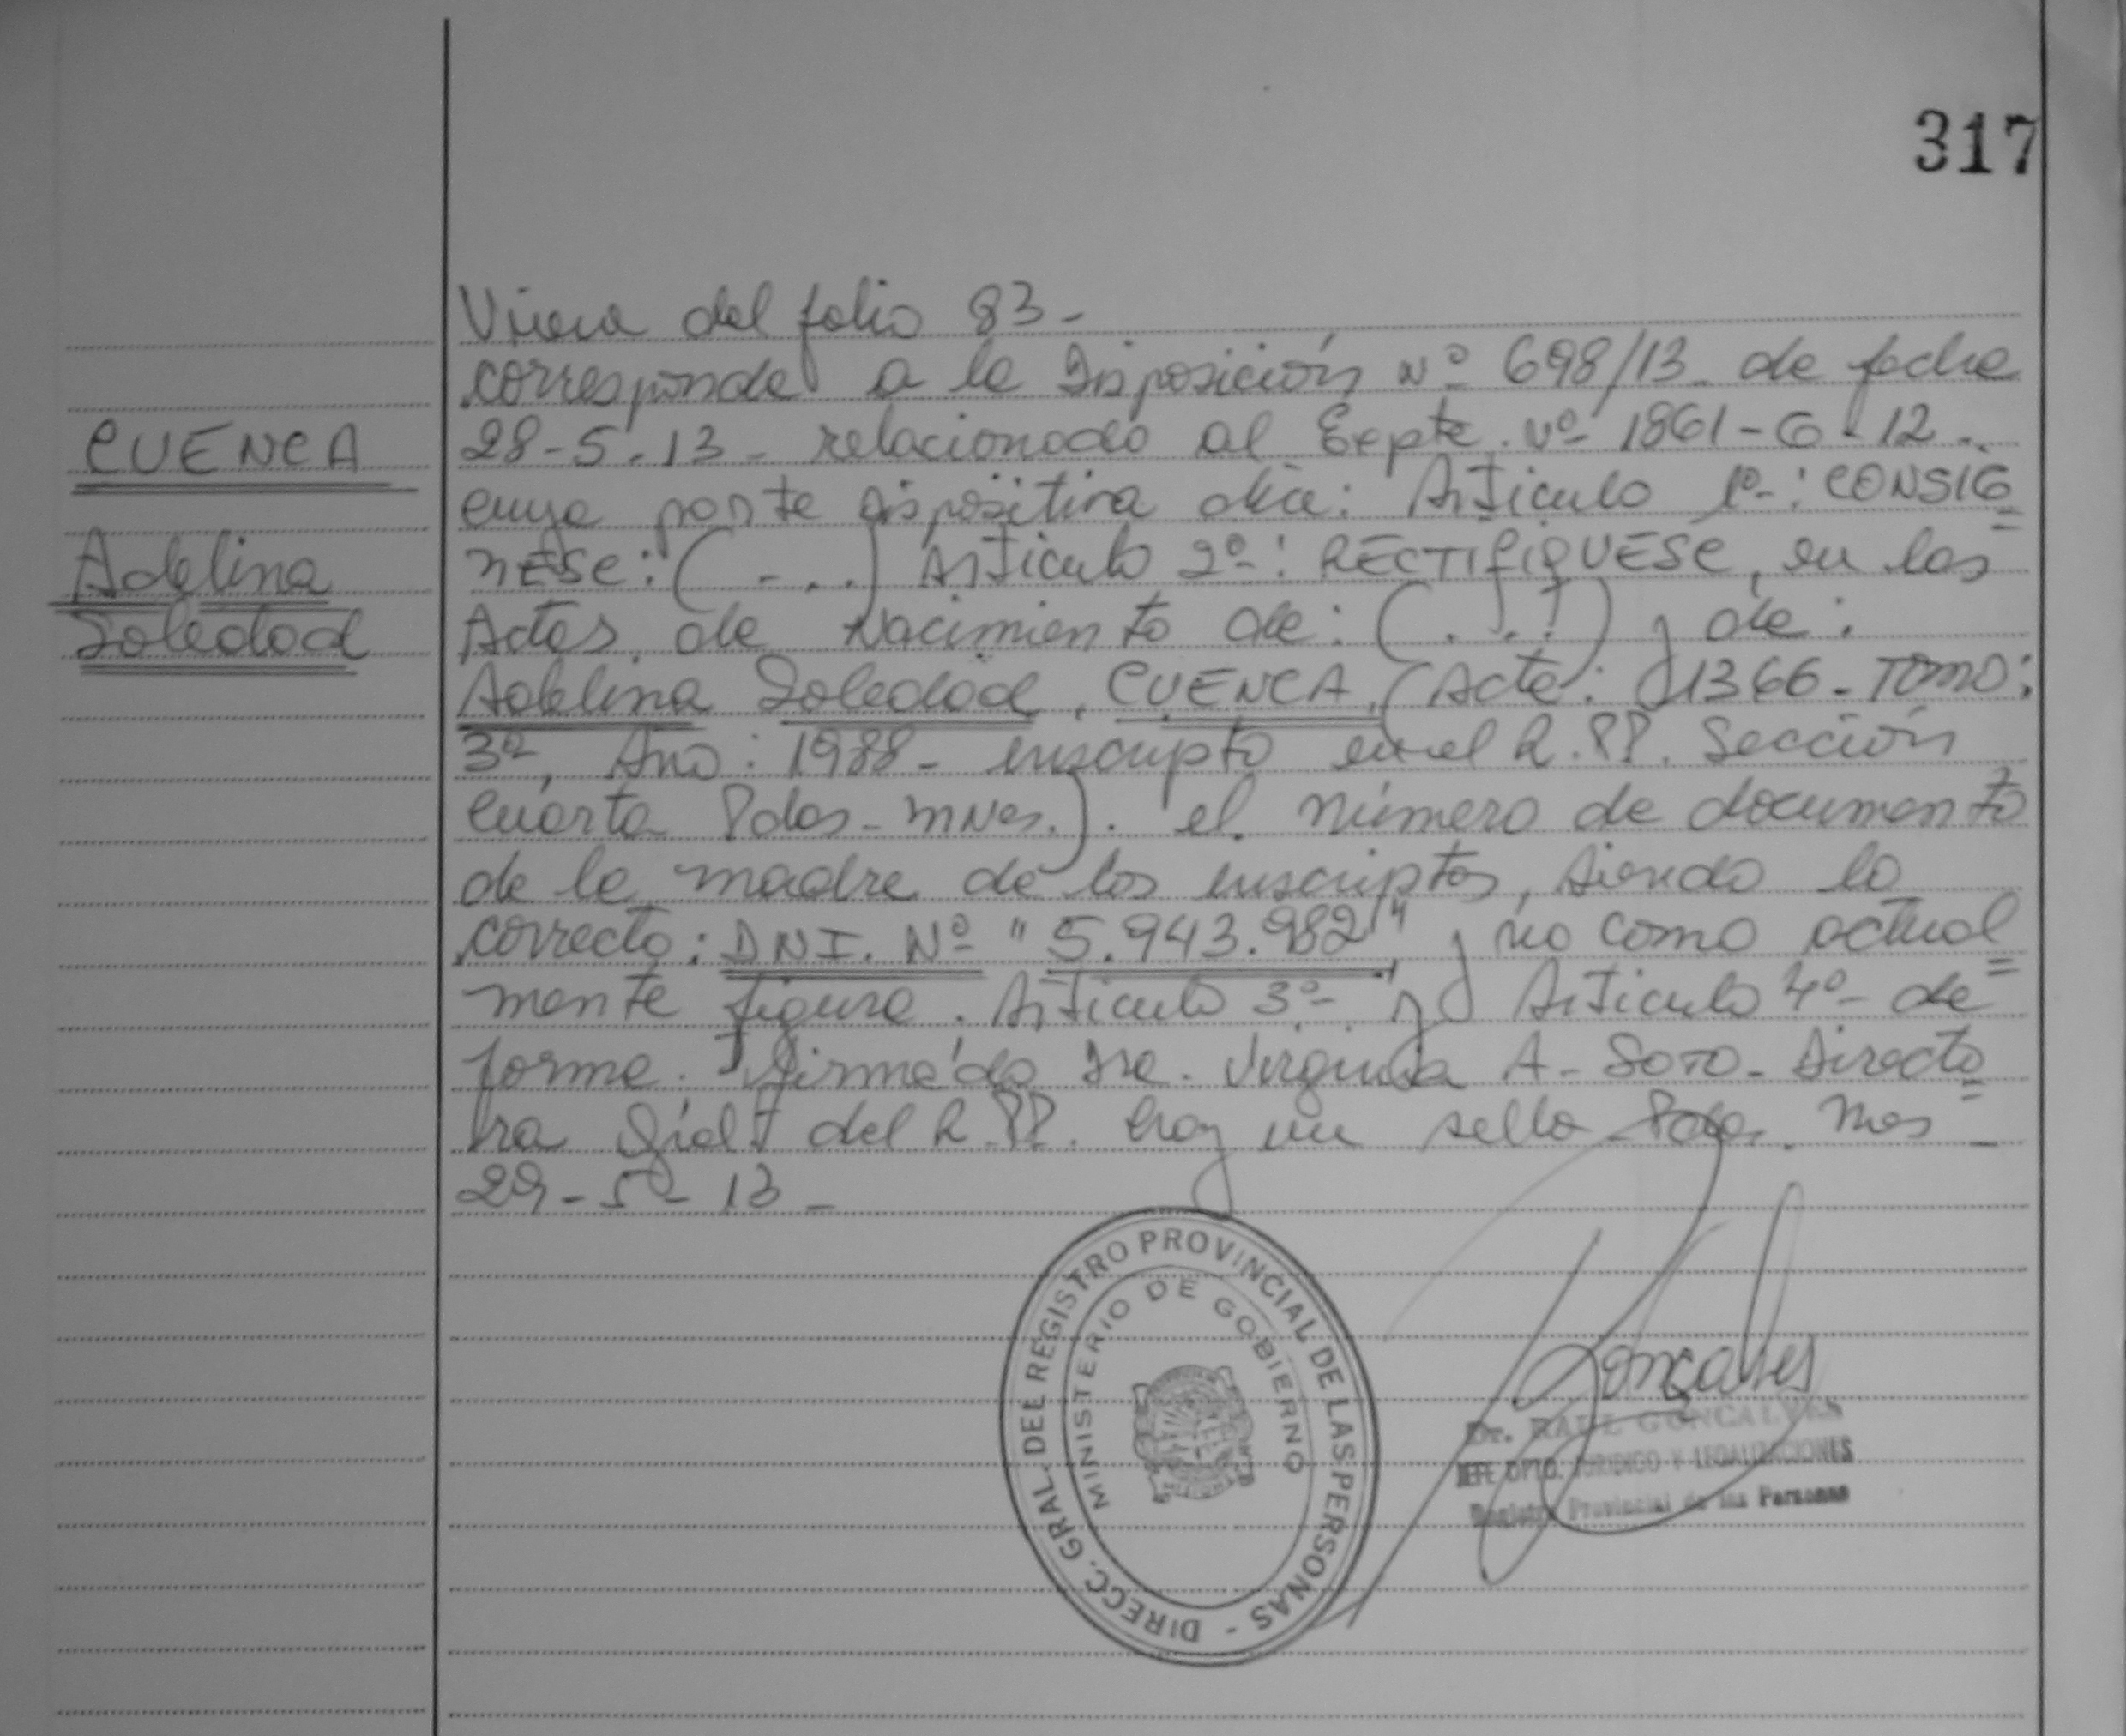 317
Viene del folio 83-
corresponde a la Disposición Nº 698/13 de fecha
28-5-13- relacionado al Expte. Nº 1861-G-12-
CUENCA
cuya parte dispositiva dice: Artículo 1º-: CONSIG
NESE: (- ...) Artículo 2º-: RECTIFIQUESE, en las
Adelina
Soledad
Actas de Nacimiento de: (. . .) y de:
Adelina Soledad, CUENCA, (Acta: 1366- TOMO:
3º, Año: 1988- inscripto en el R.PP. Sección
Cuarta Pdas-Mnes.). el número de documento
de la madre de los inscriptos, siendo lo
correcto: DNI. Nº "5.943.982" y no como actual
mente figura. Artículo 3º- y Artículo 4º- de
forma. Firmado Dra. Virginia A- SOTO- Directo
ra Gral del R.PP. hay un sello- Pdas. Mnes-
29-5-13-
DIRECC. GRAL. DEL REGISTRO PROVINCIAL DE LAS PERSONAS -
MINISTERIO DE GOBIERNO
Gonçalves
Dr. RAUL GONCALVES
JEFE DPTO. JURIDICO Y LEGALIZACIONES
Registro Provincial de las Personas